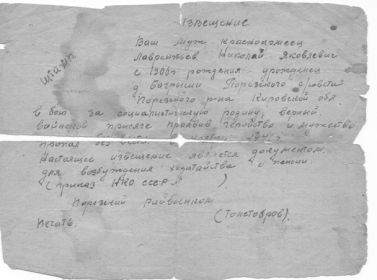 Извещение
Ваш муж красноармеец
штамп
Лаврентьев Николай Яковлевич
с 1908 г рождения уроженец
д Порезского с/совета
Порезского р-на Кировской обл.
в бою за социалистическую родину, верный
воинской присяге проявив геройство и мужество
пропал без
Настоящее извещение является документом
для возбуждения ходатайства о пенсии
(приказ НКО СССР № )
Порезский райвоенком
Печать. (Толстобров).